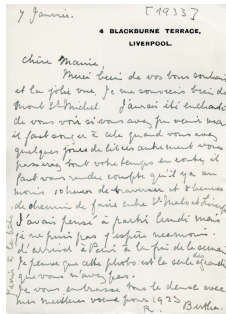 7 Janvier. [1933]
4 BLACKBURNE TERRACE,
LIVERPOOL.
Chère Mamie,
Merci bien de vos bons souhaits
et la jolie vue, Je me souviens bien de
Mont St Michel J'aurais été enchantée
de vous voir si vous avez pu venir mais
il faut songer à cela quand vous avez
quelques jours de libres autrement vous
passerez tout votre temps en route, il
faut vous rendre compte qu'il y a au
moins 10 heures de traverser et 8 heures
de chemin de faire entre St Malo et
J'avais pensé à partir lundi mais
je ne puis pas j'espère néanmoins
d'arriver à Paris à la fin de la semaine
Je pense que cette photo est la seule
que vous n'avez pas.
Je vous embrasse tous les deux avec
mes meilleurs voeux pour 1933
Bertha.